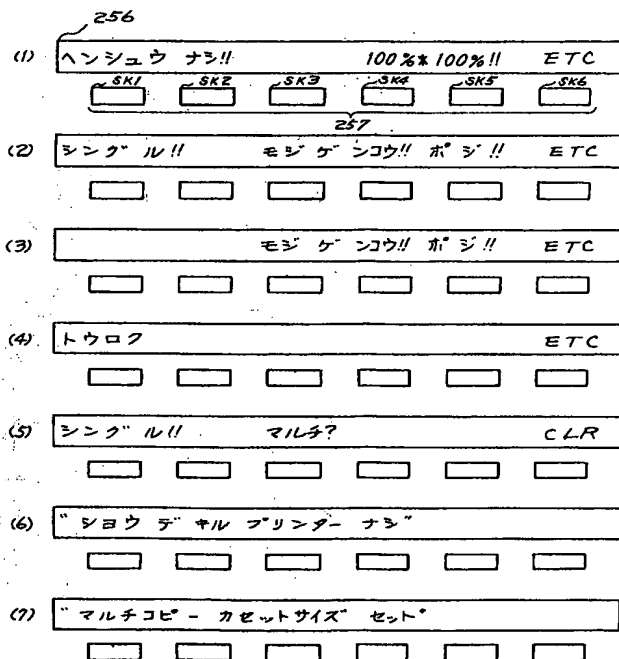 256
(1) ヘンシュウ ナシ!! 100%*100%!! ETC
SK1 SK2 SK3 SK4 SK5 SK6
257
(2) シングル!! モジゲンコウ!! ポジ!! ETC
(3) モジゲンコウ!! ポジ!! ETC
(4) トウロク ETC
(5) シングル!! マルチ? CLR
(6) "ショウ デキル プリンター ナシ"
(7) "マルチコピー カセットサイズ セット"